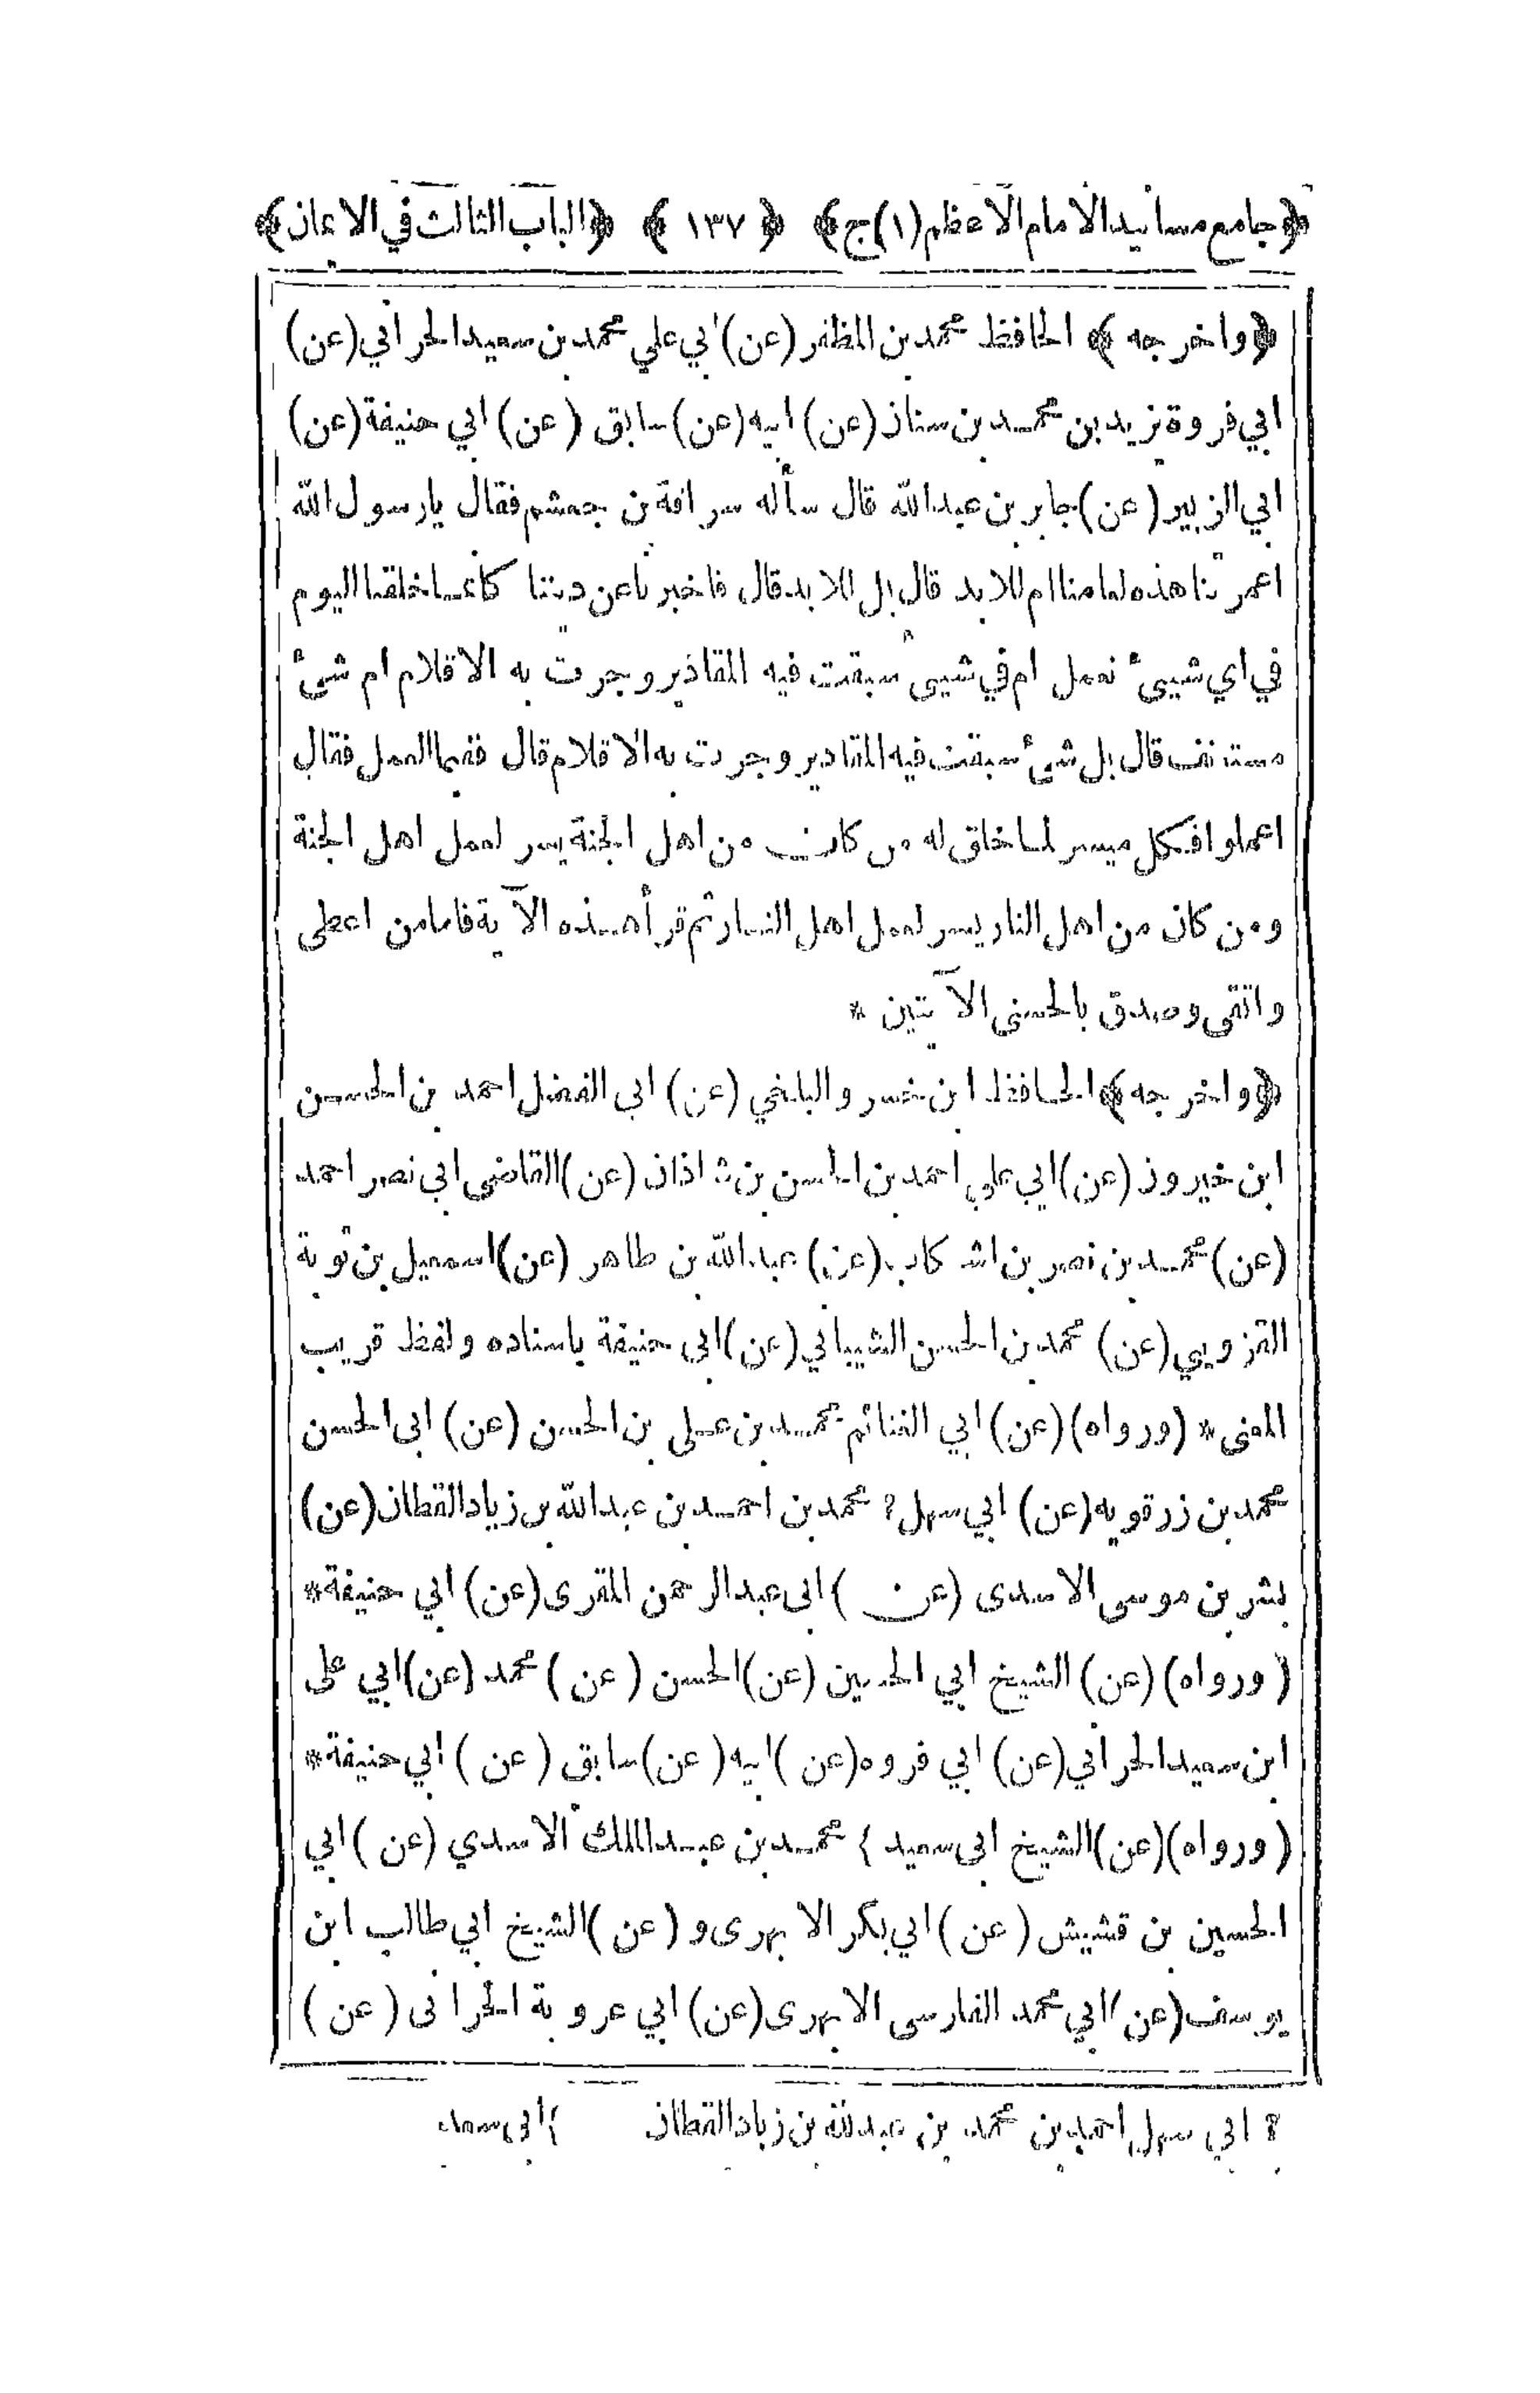 ﴿جامع مسانيد الامام الاعظم (١) ج﴾ ﴿١٣٧﴾ ﴿الباب الثالث في الايمان﴾
﴿واخرجه﴾ الحافظ محمد بن المظفر (عن) ابي علي محمد بن سعيد الحراني (عن)
ابي فروة يزيد بن محمد بن سنان (عن) ابيه (عن) سابق (عن) ابي حنيفة (عن)
ابي الزبير (عن) جابر بن عبدالله قال سأله سراقة بن جعشم فقال يا رسول الله
اعمرتنا هذه لعامنا ام للابد قال بل للابد قال فاخبرنا عن ديننا كأنما خلقنا اليوم
في اي شيئ نعمل ام في شيئ سبقت فيه المقادير وجرت به الاقلام ام شئ
مستأنف قال بل شئ سبقت فيه المقادير وجرت به الاقلام قال ففيما العمل فقال
اعملوا فكل ميسر لما خلق له من كان من اهل الجنة يسر لعمل اهل الجنة
ومن كان من اهل النار يسر لعمل اهل النار ثم قرأ هذه الآية فاما من اعطى
واتقى وصدق بالحسنى الآيتين *
﴿واخرجه﴾ الحافظ ابن خسرو البلخي (عن) ابي الفضل احمد بن الحسن
ابن خيرون (عن) ابي علي احمد بن الحسن بن شاذان (عن) القاضي ابي نصر احمد
(عن) محمد بن نصر بن اشكاب (عن) عبدالله بن طاهر (عن) اسمعيل بن توبة
القزويي (عن) محمد بن الحسن الشيباني (عن) ابى حنيفة باسناده ولفظ قريب
المعنى * (ورواه) (عن) ابي الغنائم محمد بن على بن الحسن (عن) ابى الحسن
محمد بن زرقويه (عن) ابي سهل ? محمد بن احمد بن عبدالله بن زياد القطان (عن)
بشر بن موسى الاسدى (عن) ابى عبدالرحمن المقرى (عن) ابي حنيفة *
(ورواه) (عن) الشيخ ابي الحسين (عن) الحسن (عن) محمد (عن) ابي على
ابن سعيد الحراني (عن) ابي فروه (عن) ابيه (عن) سابق (عن) ابي حنيفة *
(ورواه) (عن) الشيخ ابى سعيد } محمد بن عبدالملك الاسدي (عن) ابي
الحسين بن قشيش (عن) ابي بكر الابهرى و (عن) الشيخ ابي طالب ابن
يوسف (عن) ابي محمد الفارسى الابهرى (عن) ابي عروبة الحرانى (عن)
? ابى سهل احمد بن محمد بن عبدالله بن زياد القطان } ابى سعد